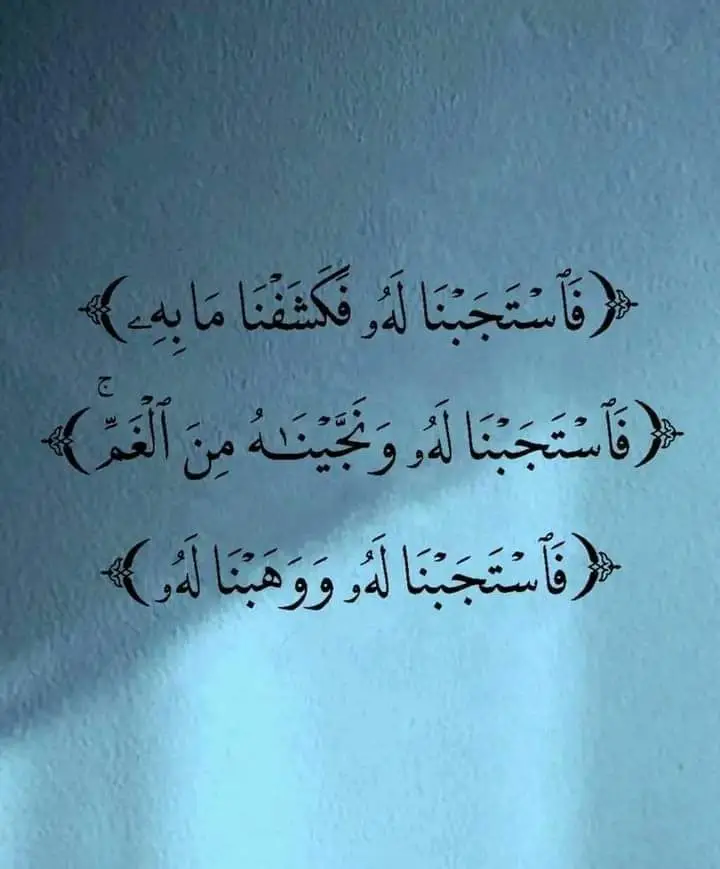 ﴿فَٱسْتَجَبْنَا لَهُۥ فَكَشَفْنَا مَا بِهِۦ﴾
﴿فَٱسْتَجَبْنَا لَهُۥ وَنَجَّيْنَـٰهُ مِنَ ٱلْغَمِّ ۚ﴾
﴿فَٱسْتَجَبْنَا لَهُۥ وَوَهَبْنَا لَهُۥ﴾